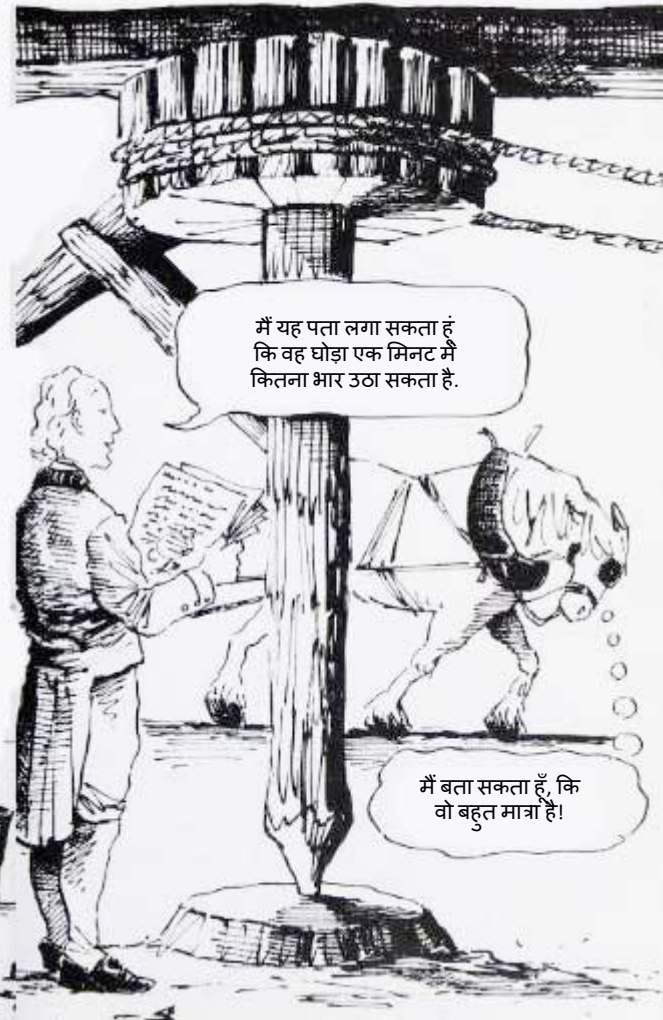 मैं यह पता लगा सकता हूं
कि वह घोड़ा एक मिनट में
कितना भार उठा सकता है.
मैं बता सकता हूँ, कि
वो बहुत मात्रा है!